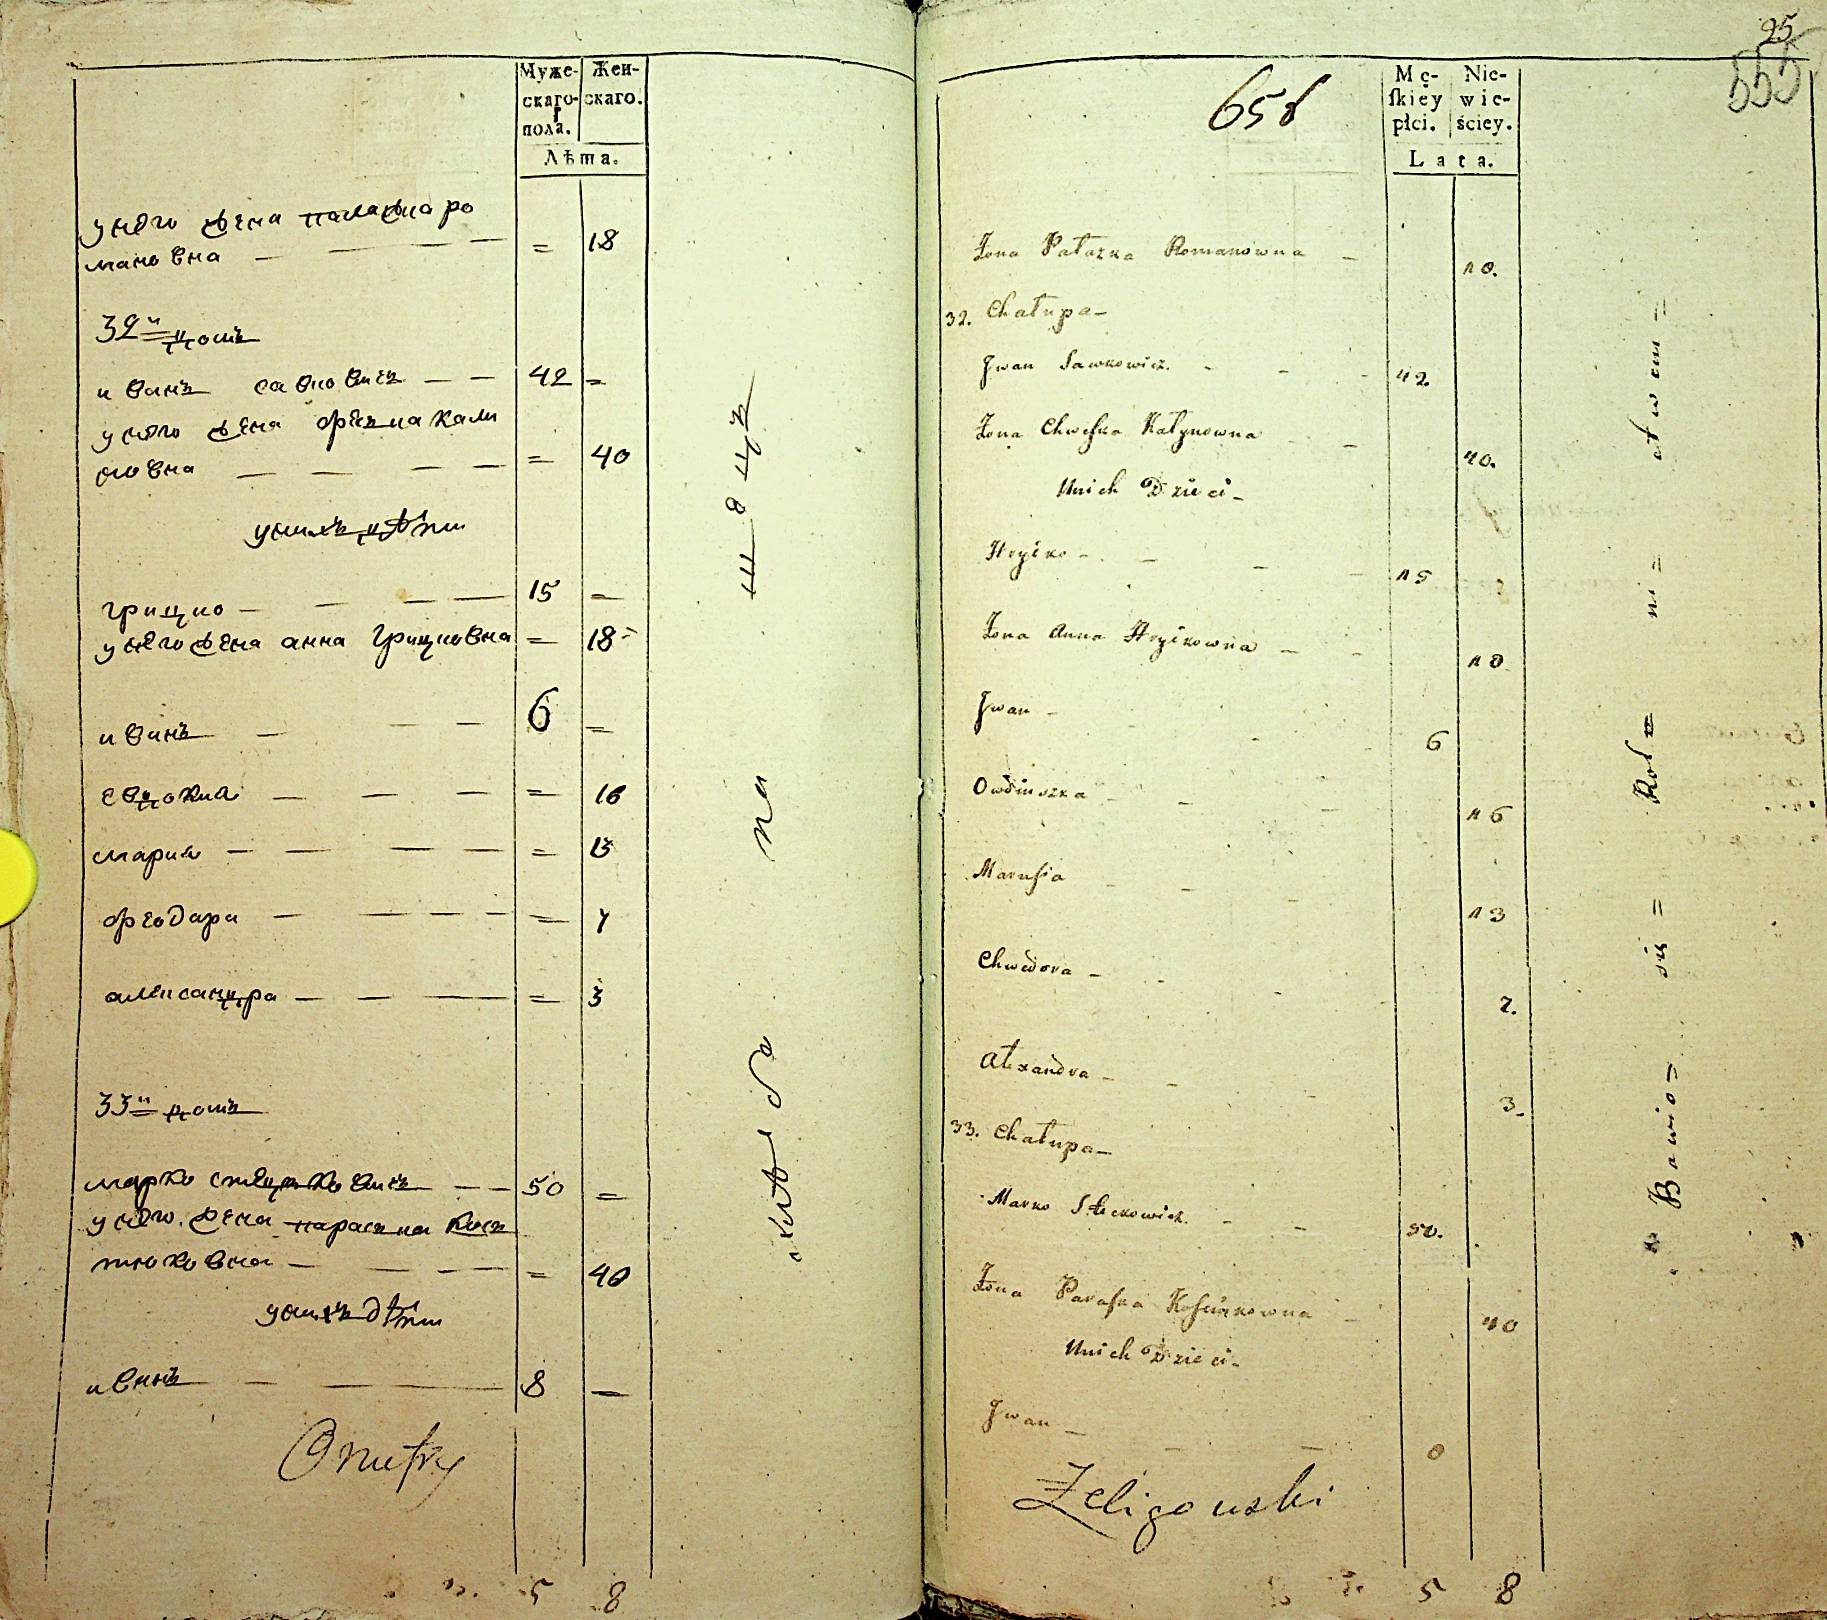 Муже-
скаго
пола.
Жен-
скаго.
Лѣта.
у него жена палажка ро
мановна — — — — = 18
32й домъ
иванъ савковичъ — — 42 =
у него жена феська кали
новна — — — — = 40
у нихъ дѣти
грицко — — — — 15 —
у него жена анна грицковна = 18
иванъ — — — 6 —
евдокия — — — — = 16
мария — — — — = 13
феодора — — — — = 7
александра — — — = 3
33й домъ
марко стецковичъ — — 50 =
у него жена параска кось
тюковна — — — — = 40
у нихъ дѣти
иванъ — — 8 —
Onufry
5 8
на
25
555
658
Mę-
skiey
płci.
Nie-
wie-
ściey.
Lata.
Żona Pałazka Romanowna — 18.
32. Chałupa —
Jwan Sawkowicz. - - - 42
Żona Chweska Kałynowna — 40.
Unich Dzieci —
Hryćko - — — — 15
Żona Anna Hryćkowna — - 18
Jwan - 6
Owdiuszka - - 16
Marusia - - - 13
Chwedora — - - 7.
Alexandra — - 3.
33. Chałupa —
Marko Steckowicz. - — 50.
Żona Paraska Kościukowna — 40
Unich Dzieci —
Jwan — — — 8
Zeligowski
5 8
Bawio= się= Rol= ni= ctwem=